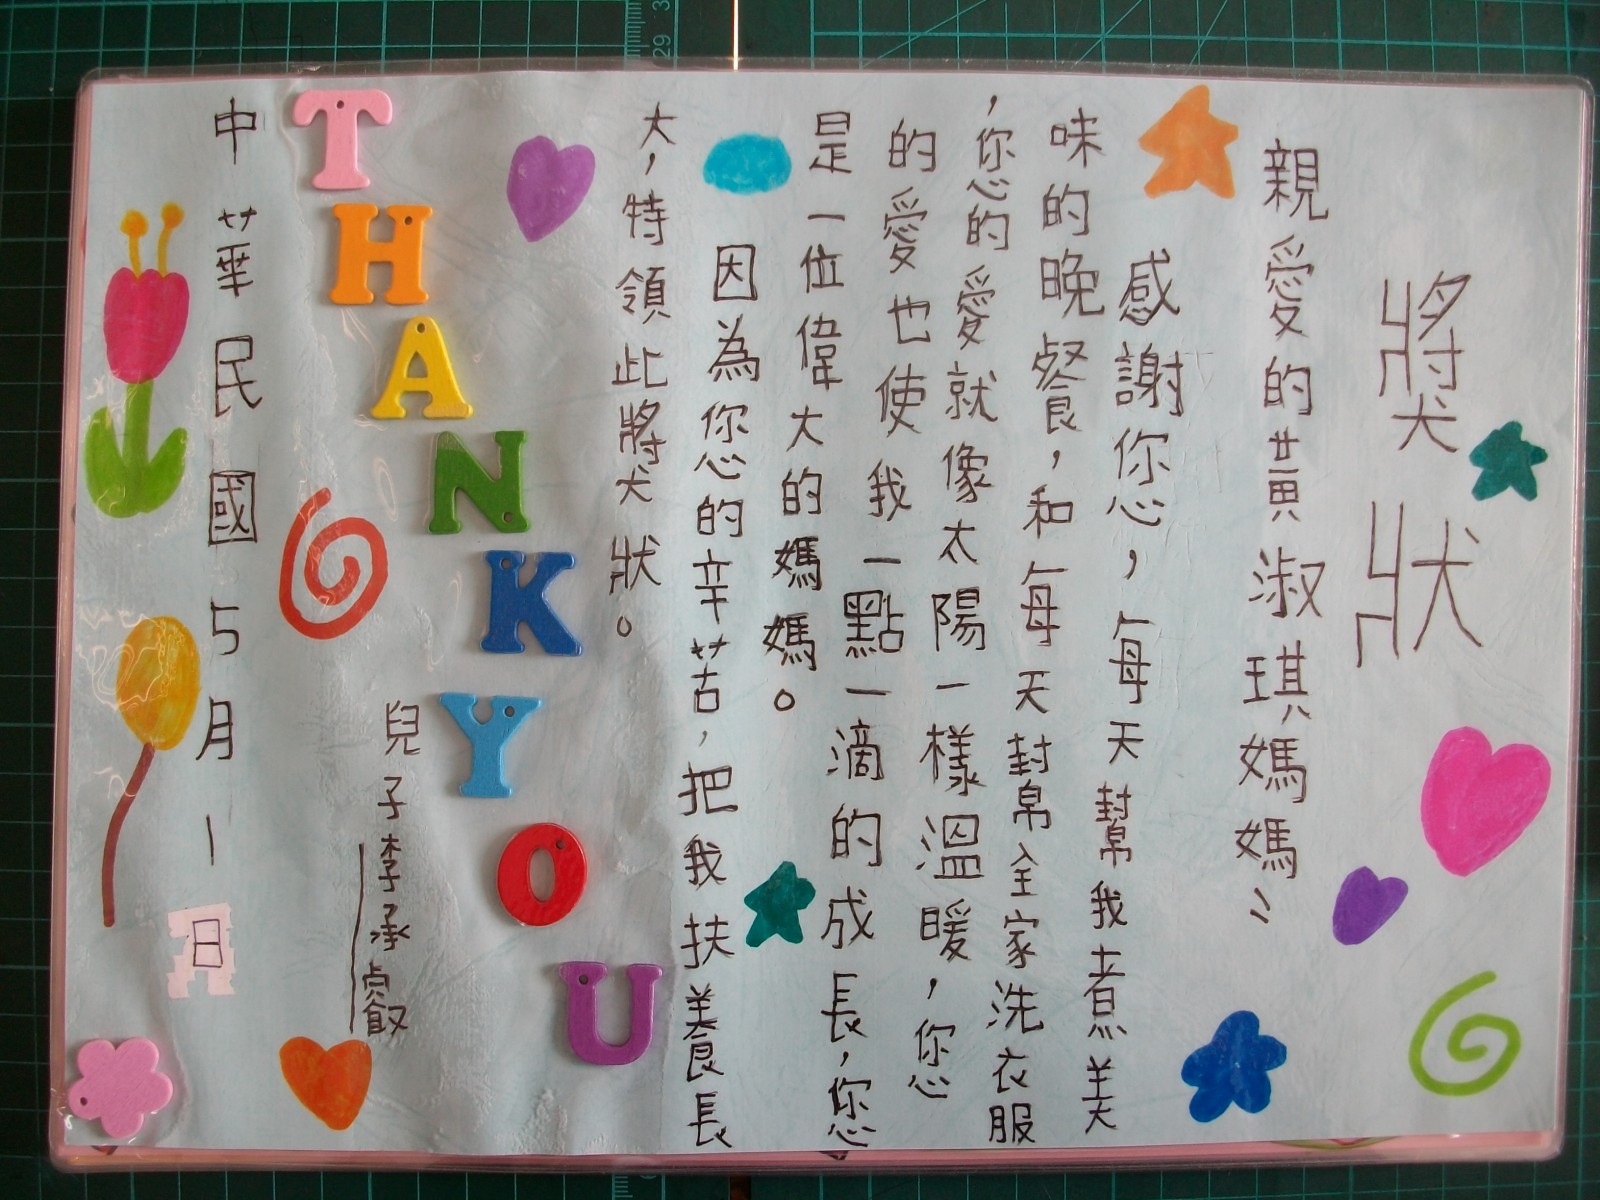 獎狀
親愛的黃淑琪媽媽：
感謝您，每天幫我煮美
味的晚餐，和每天幫全家洗衣服
，您的愛就像太陽一樣溫暖，您
的愛也使我一點一滴的成長，您
是一位偉大的媽媽。
因為您的辛苦，把我扶養長
大，特領此獎狀。
THANK YOU
兒子李承叡
中華民國5月1日
29